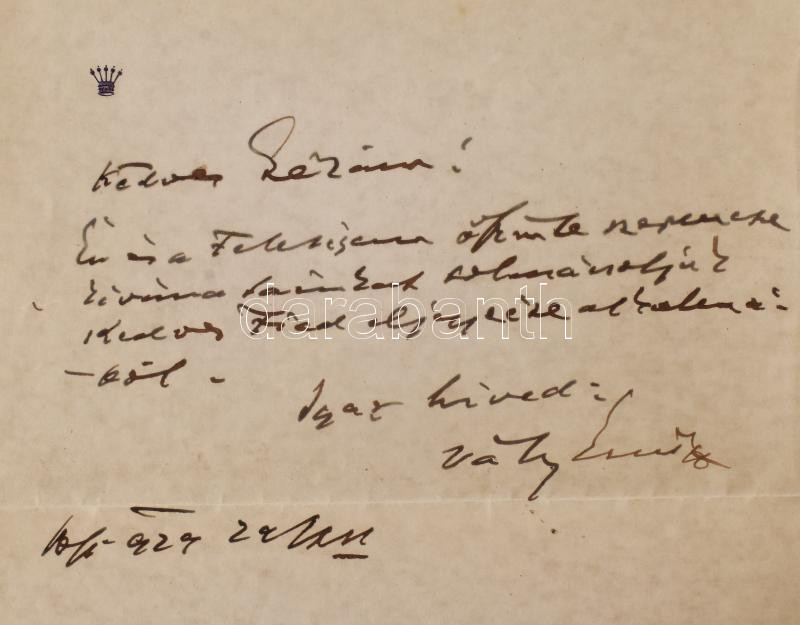 Kedves Gézám!
Én és a Feleségem őszinte szerencse
kivána tainkat tolmácsoljuk
Kedves Fiad eljegyzése alkalmá-
-ból.
Igaz hived:
Vály Ernő
darabanth